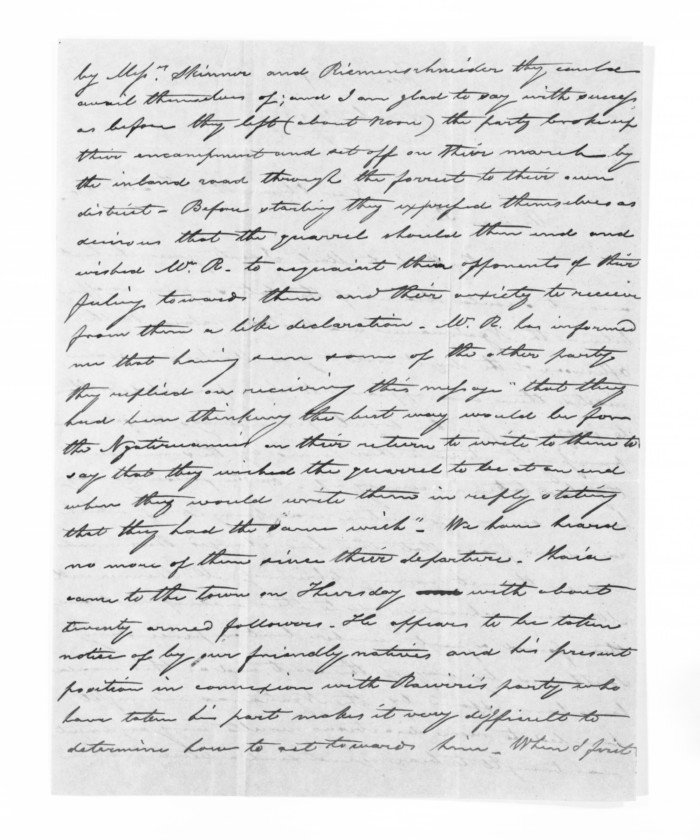 by Messrs Skinner and Riemenschneider they could
avail themselves of; and I am glad to say with success,
as before they left (about Noon) the party broke up
their encampment and set off on their march by
the inland road through the forrest to their own
district - Before starting they expressed themselves as
desirous that the quarrel should then end and
wished Mr. R. to acquaint their opponents of their
feeling towards them and their anxiety to receive
from them a like declaration - Mr. R. has informed
me that having seen some of the other party
they replied on receiving this message "that they
had been thinking the best way would be for
the Ngatiruanui on their return to write to them to
say that they wished the quarrel to be at an end
when they would write them in reply stating
that they had the same wish" - We have heard
no more of them since their departure -
came to the town on Thursday with about
twenty armed followers - He appears to be taken
notice of by our friendly natives and his present
position in connexion with Rawiri's party who
have taken his part makes it very difficult to
determine how to act towards him - When I first